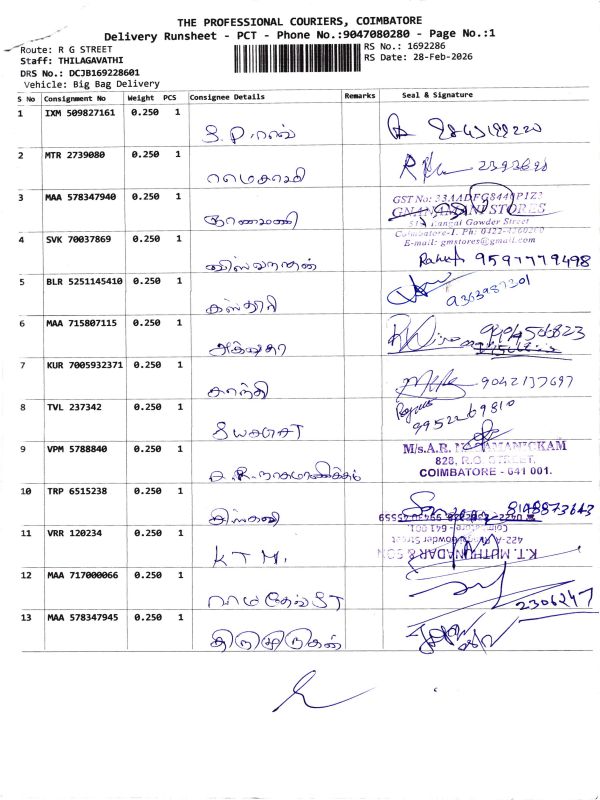 THE PROFESSIONAL COURIERS, COIMBATORE
Delivery Runsheet - PCT - Phone No.:9047080280 - Page No.:1
Route: R G STREET
Staff: THILAGAVATHI
DRS No.: DCJB169228601
Vehicle: Big Bag Delivery
RS No.: 1692286
RS Date: 28-Feb-2026
S No Consignment No Weight PCS Consignee Details Remarks Seal & Signature
1 IXM 509827161 0.250 1
2 MTR 2739080 0.250 1
3 MAA 578347940 0.250 1 ஞானமணி
GST No: 33AADFG8440P1Z3
GNANAMANI STORES
Gowder Street
Coimbatore-1. Ph: 0422-4360260
E-mail: gmstores@gmail.com
4 SVK 70037869 0.250 1 விஸ்வநாதன் Rakesh 9597779498
5 BLR 5251145410 0.250 1 கஸ்தூரி 9363987201
6 MAA 715807115 0.250 1
7 KUR 7005932371 0.250 1 சாந்தி 9042137697
8 TVL 237342 0.250 1 9952269810
9 VPM 5788840 0.250 1 A.R. நாகமாணிக்கம்
M/s.A.R. MANICKAM
828, R.G. STREET,
COIMBATORE - 641 001.
10 TRP 6515238 0.250 1 8148873643
11 VRR 120234 0.250 1 KTM.
K.T. MUTHU NADAR & SON
Gowder Street
Coimbatore - 641 001.
12 MAA 717000066 0.250 1 ராமதேவ் ST 2306247
13 MAA 578347945 0.250 1 திருமுருகன்